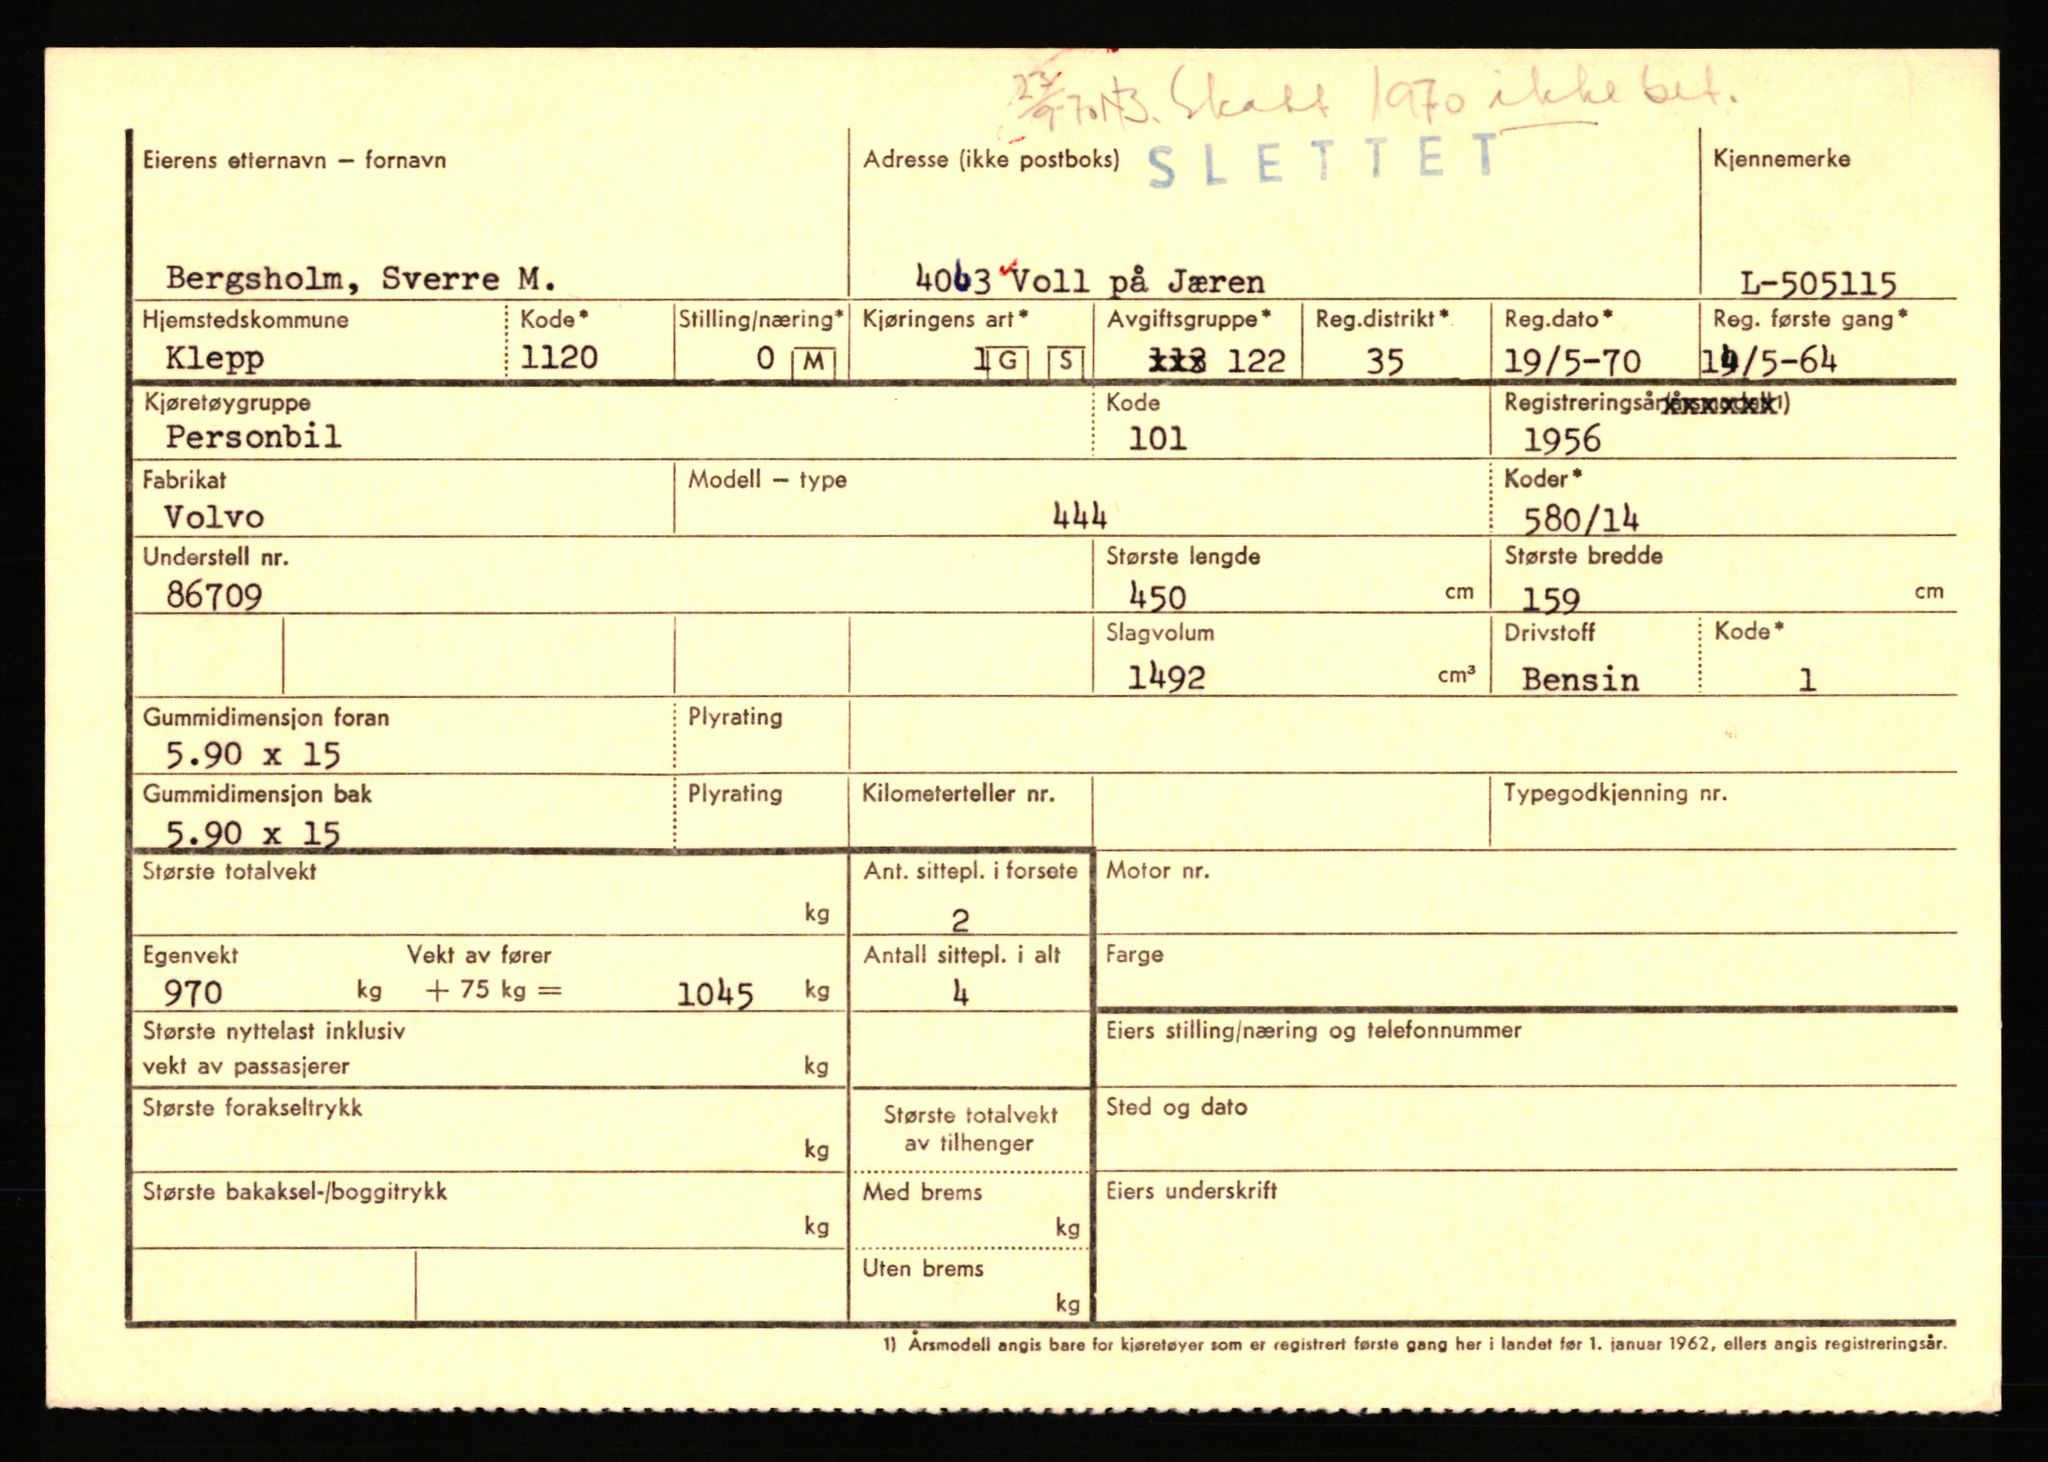 27/9-70 NB. Skatt 1970 ikke bet.
SLETTET
Eierens etternavn – fornavn Adresse (ikke postboks) Kjennemerke
Bergsholm, Sverre M. 4063 Voll på Jæren L-505115
Hjemstedskommune Kode* Stilling/næring* Kjøringens art* Avgiftsgruppe* Reg.distrikt* Reg.dato* Reg. første gang*
Klepp 1120 0 M 1 G S 122 35 19/5-70 14/5-64
Kjøretøygruppe Kode Registreringsår 1)
Personbil 101 1956
Fabrikat Modell – type Koder*
Volvo 444 580/14
Understell nr. Største lengde Største bredde
86709 450 cm 159 cm
Slagvolum Drivstoff Kode*
1492 cm³ Bensin 1
Gummidimensjon foran Plyrating
5.90 x 15
Gummidimensjon bak Plyrating Kilometerteller nr. Typegodkjenning nr.
5.90 x 15
Største totalvekt Ant. sittepl. i forsete Motor nr.
kg 2
Egenvekt Vekt av fører Antall sittepl. i alt Farge
970 kg + 75 kg = 1045 kg 4
Største nyttelast inklusiv Eiers stilling/næring og telefonnummer
vekt av passasjerer kg
Største forakseltrykk Største totalvekt Sted og dato
av tilhenger
kg
Største bakaksel-/boggitrykk Med brems Eiers underskrift
kg kg
Uten brems
kg
1) Årsmodell angis bare for kjøretøyer som er registrert første gang her i landet før 1. januar 1962, ellers angis registreringsår.